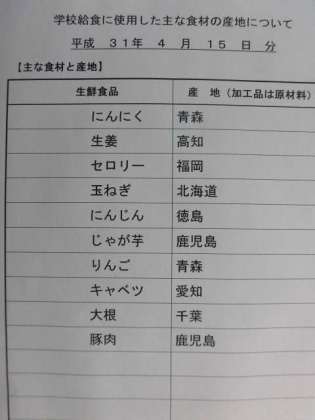 学校給食に使用した主な食材の産地について
平成 31年 4 月 15 日 分
【主な食材と産地】
生鮮食品 産 地（加工品は原材料）
にんにく 青森
生姜 高知
セロリー 福岡
玉ねぎ 北海道
にんじん 徳島
じゃが芋 鹿児島
りんご 青森
キャベツ 愛知
大根 千葉
豚肉 鹿児島